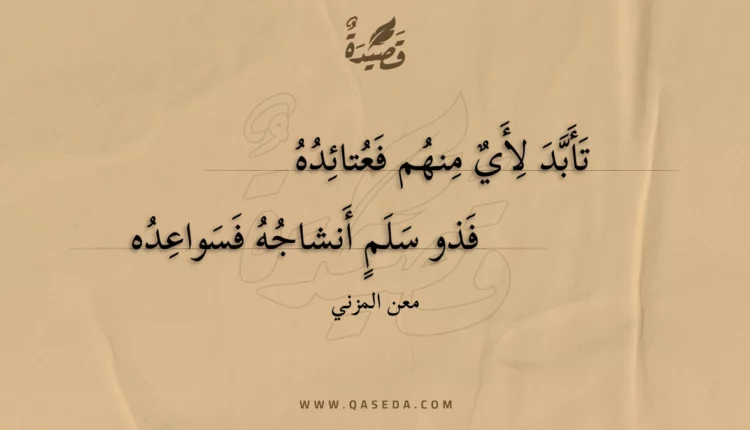 قَصِيدَةٌ
تَأَبَّدَ لِأَيٌ مِنهُم فَعُتائِدُهُ
فَذو سَلَمٍ أَنشاجُهُ فَسَواعِدُه
معن المزني
WWW.QASEDA.COM